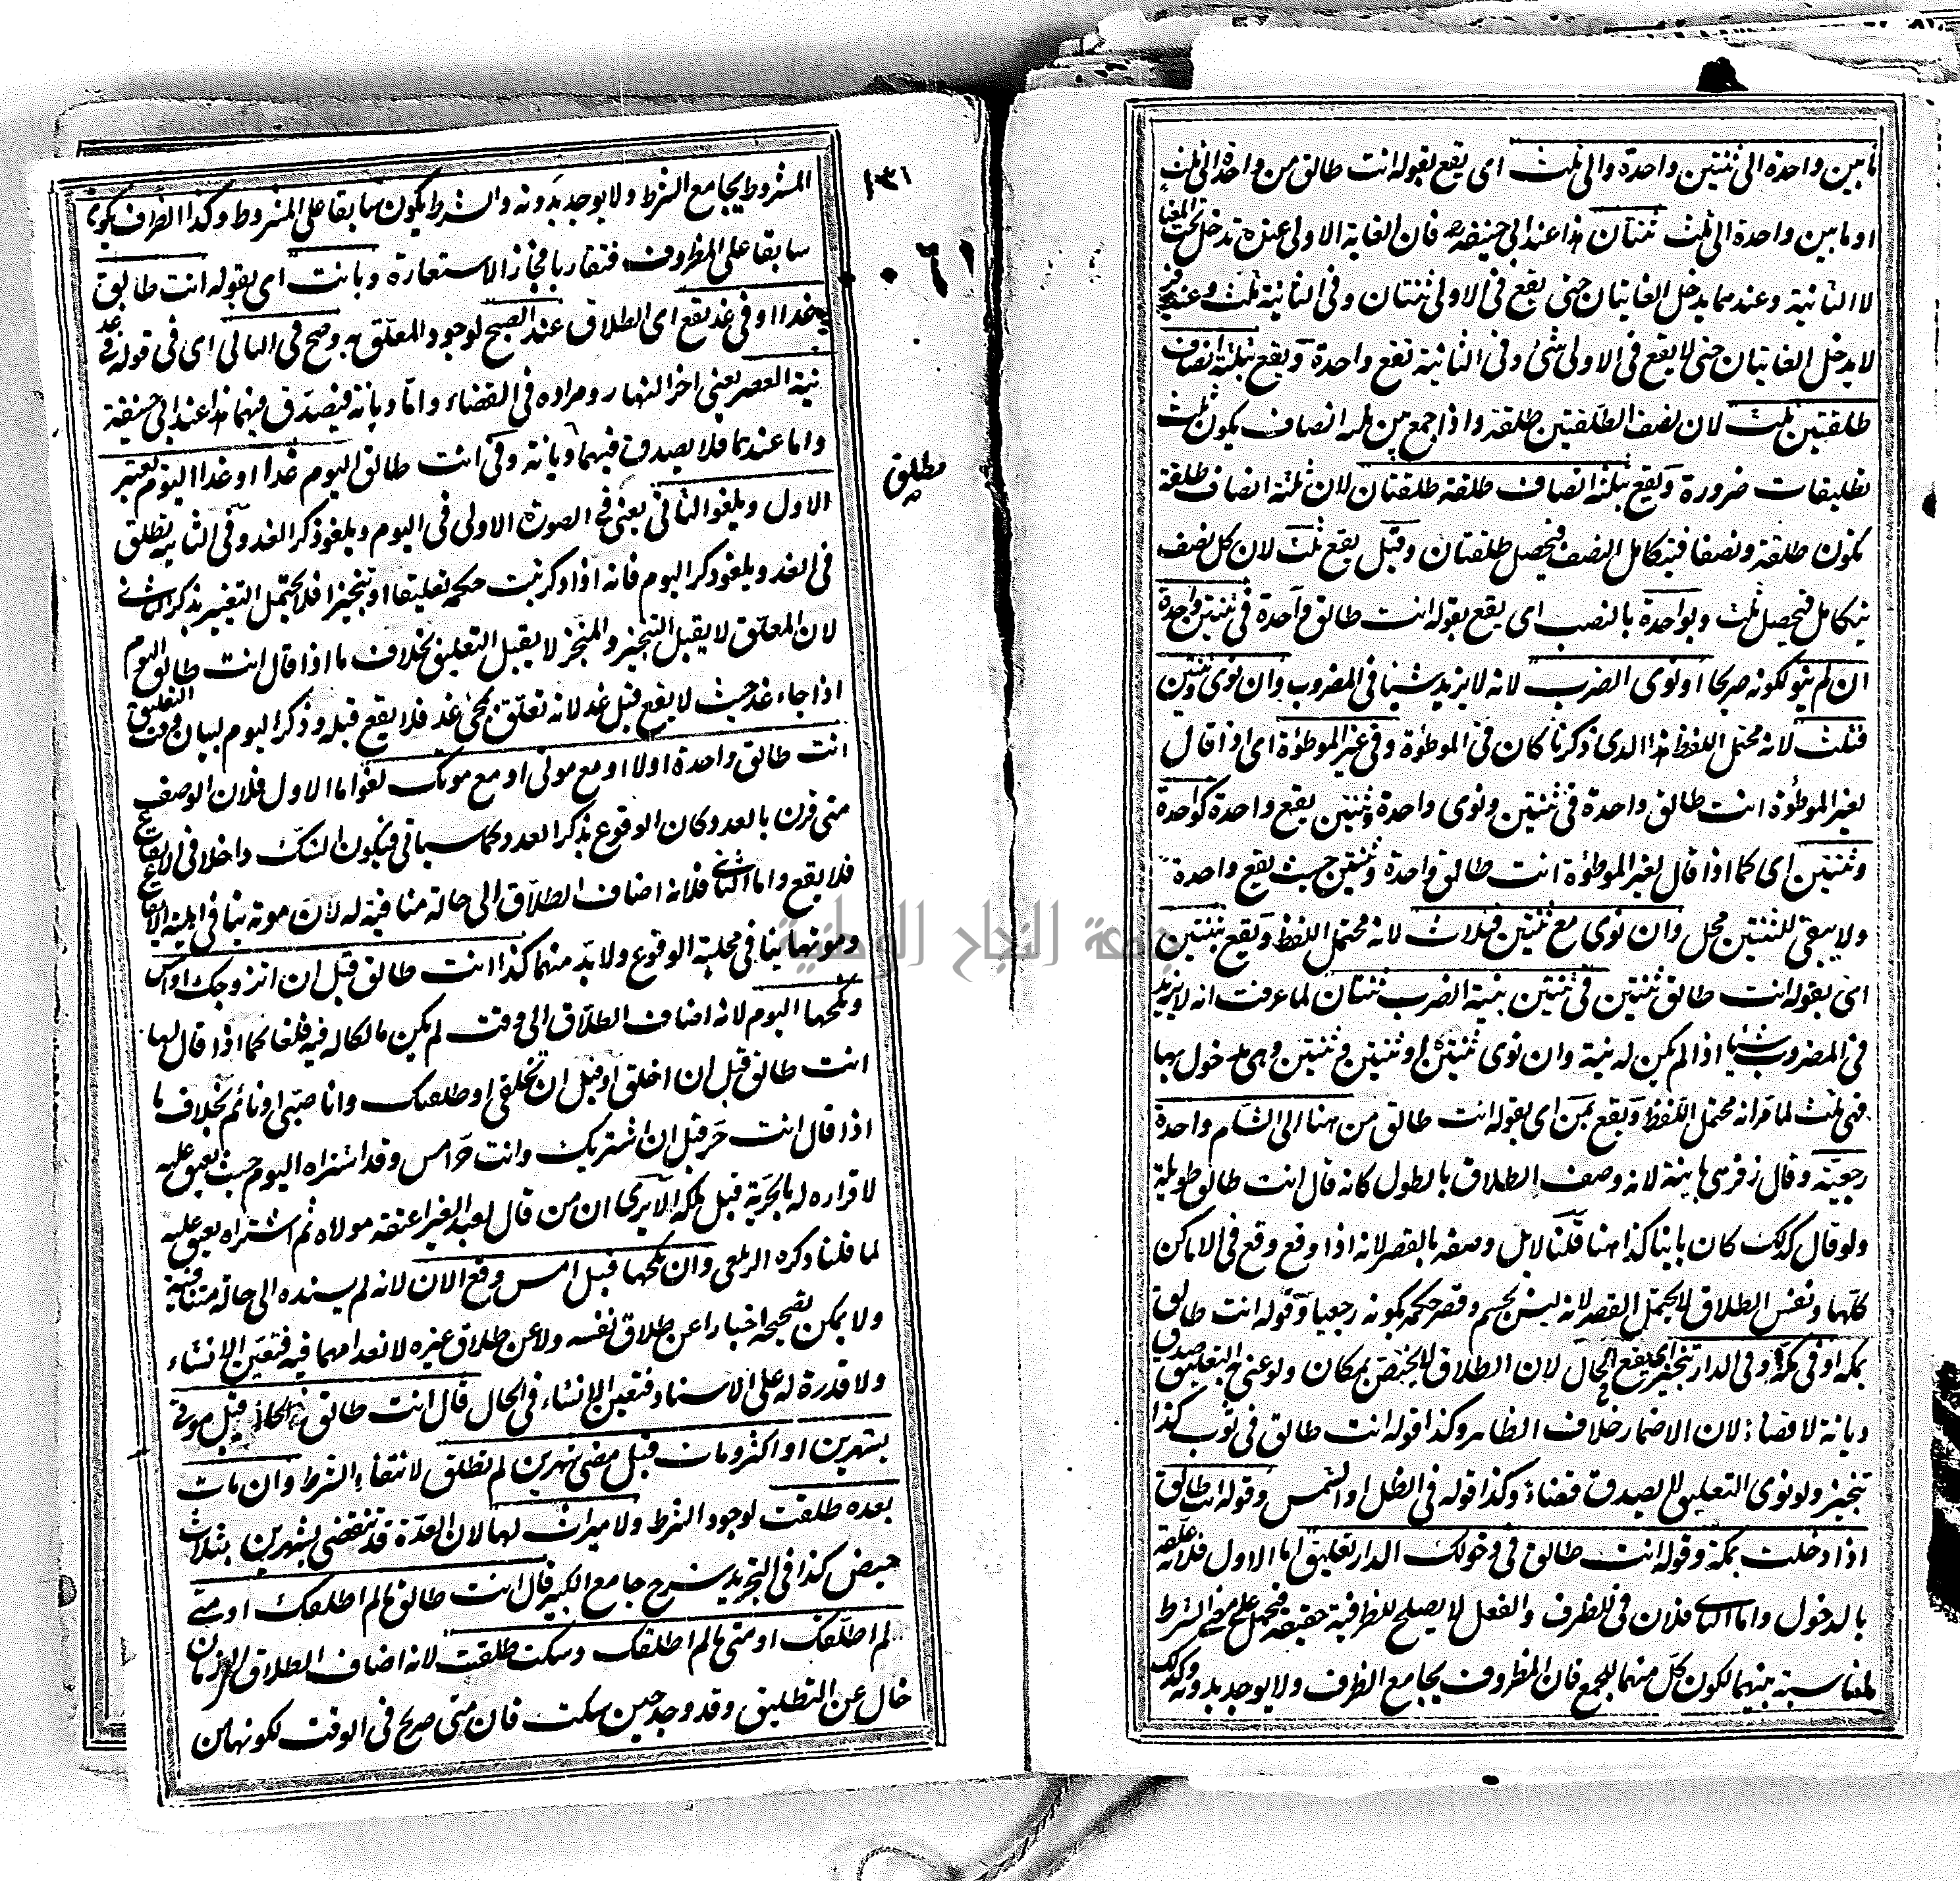 ما بين واحدة الى ثنتين واحدة والى ثلث اى يقع بقوله انت طالق من واحدة الى ثلث
او ما بين واحدة الى ثلث ثنتان هذا عند ابي حنيفة فان الغاية الاولى عنده تدخل تحت المغيا
لا الثانية وعندهما يدخل الغايتان حتى يقع فى الاولى ثنتان وفى الثانية ثلث وعند زفر
لا يدخل الغايتان حتى لا يقع فى الاولى شئ وفى الثانية تقع واحدة ويقع بثلثة انصاف
طلقتين ثلث لان نصف الطلقتين طلقة واذا جمع بين ثلثة انصاف يكون ثلث
تطليقات ضرورة ويقع بثلثة انصاف طلقة طلقتان لان ثلثة انصاف طلقة
يكون طلقة ونصفا فيتكامل النصف فيحصل طلقتان وقيل يقع ثلث لان كل نصف
يتكامل فيحصل ثلث وبواحدة بالنصب اى يقع بقوله انت طالق واحدة فى ثنتين واحدة
ان لم ينو لكونه صريحا او نوى الضرب لانه لا يزيد شيئا فى المضروب وان نوى وثنتين
فثلث لانه محتمل اللفظ هذا الذى ذكرنا كان فى الموطؤة وفى غير الموطؤة اى اذا قال
لغير الموطؤة انت طالق واحدة فى ثنتين ونوى واحدة وثنتين يقع واحدة كواحدة
وثنتين اى كما اذا قال لغير الموطؤة انت طالق واحدة وثنتين حيث يقع واحدة
ولا يبقى للثنتين محل وان نوى مع ثنتين فثلاث لانه محتمل اللفظ ويقع بثنتين
اى بقوله انت طالق ثنتين فى ثنتين بنية الضرب ثنتان لما عرفت انه لا يزيد
فى المضروب شيئا اذا لم يكن له نية وان نوى ثنتين وثنتين وهى مدخول بها
فهى ثلث لما مر انه محتمل اللفظ ويقع بمن اى بقوله انت طالق من هنا الى الشام واحدة
رجعية وقال زفر هى باينة لانه وصف الطلاق بالطول كانه قال انت طالق طويلة
ولو قال كذلك كان باينا كذا هنا قلنا لا بل وصفه بالقصر لانه اذا وقع وقع فى الاماكن
كلها ونفس الطلاق لا يحتمل القصر لانه ليس بجسم وقصر حكمه بكونه رجعيا وقوله انت طالق
بمكة او فى مكة وفى الدار تنجيز اى يقع فى الحال لان الطلاق لا يختص بمكان ولو عنى التعليق صدق
ديانة لا قضاء لان الاضمار خلاف الظاهر وكذا قوله انت طالق فى ثوب كذا
تنجيز ولو نوى التعليق لا يصدق قضاء وكذا قوله فى الظل او الشمس وقوله انت طالق
اذا دخلت بمكة وقوله انت طالق فى دخولك الدار تعليق اما الاول فلانه علقه
بالدخول واما الثانى فلان فى للظرف والفعل لا يصلح للظرفية حقيقة فيحمل على معنى الشرط
لمناسبة بينهما لكون كل منهما للجمع فان المظروف يجامع الظرف ولا يوجد بدونه وكذلك
١٣١
٠٦١
مطلق
المشروط يجامع الشرط ولا يوجد بدونه والشرط يكون سابقا على المشروط وكذا الظرف يكون
سابقا على المظروف فتقاربا فجاز الاستعارة وبانت اى بقوله انت طالق
غدا او فى غد يقع اى الطلاق عند الصبح لوجود المعلق به وصح فى الثانى اى فى قوله فى غد
نية العصر يعنى اخر النهار ومراده فى القضاء واما ديانة فيصدق فيهما هذا عند ابى حنيفة
واما عندهما فلا يصدق فيهما ديانة وفى انت طالق اليوم غدا او غدا اليوم يعتبر
الاول ويلغو الثانى يعنى فى الصورة الاولى فى اليوم ويلغو ذكر الغد وفى الثانية يطلق
فى الغد ويلغو ذكر اليوم فانه اذا ذكر ثبت حكمه تعليقا او تنجيزا فلا يحتمل التغيير بذكر الثانى
لان المعلق لا يقبل التنجيز والمنجز لا يقبل التعليق بخلاف ما اذا قال انت طالق اليوم
اذا جاء غد حيث لا يقع قبل غد لانه تعلق بمجئ غد فلا يقع قبله وذكر اليوم لبيان وقت التعليق
انت طالق واحدة اولا او مع موتى او مع موتك لغو اما الاول فلان الوصف
متى قرن بالعدد كان الوقوع بذكر العدد كما سياتى فيكون الشك داخلا فى الايقاع
فلا يقع واما الثانى فلانه اضاف الطلاق الى حالة منافية له لان موته ينافى اهلية الايقاع
وموتها ينافى محلية الوقوع ولا بد منهما كذا انت طالق قبل ان اتزوجك او امس
ونكحها اليوم لانه اضاف الطلاق الى وقت لم يكن مالكا له فيه فلغا كما اذا قال لها
انت طالق قبل ان اخلق او قبل ان تخلقى او طلقتك وانا صبى او نائم بخلاف ما
اذا قال انت حر قبل ان اشتريك وانت حر امس وقد اشتراه اليوم حيث يعتق عليه
لاقراره له بالحرية قبل ملكه الا يرى ان من قال لعبد الغير اعتقه مولاه ثم اشتراه يعتق عليه
لما قلنا ذكره الزيلعى وان نكحها قبل امس وقع الان لانه لم يسنده الى حالة منافية
ولا يمكن تصحيحه اخبارا عن طلاق نفسه ولا عن طلاق غيره لانعدامهما فيه فتعين الانشاء
ولا قدرة له على الاسناد فتعين الانشاء فى الحال قال انت طالق قبل موتى
بشهرين او اكثر ومات قبل مضى شهرين لم تطلق لانتفاء الشرط وان مات
بعده طلقت لوجود الشرط ولا ميراث لها لان العدة قد تنقضى بشهرين بثلاث
حيض كذا فى التجريد شرح جامع الكبير قال انت طالق ما لم اطلقك او متى
لم اطلقك او متى ما لم اطلقك وسكت طلقت لانه اضاف الطلاق الى زمان
خال عن التطليق وقد وجد حين سكت فان متى صريح فى الوقت لكونها من